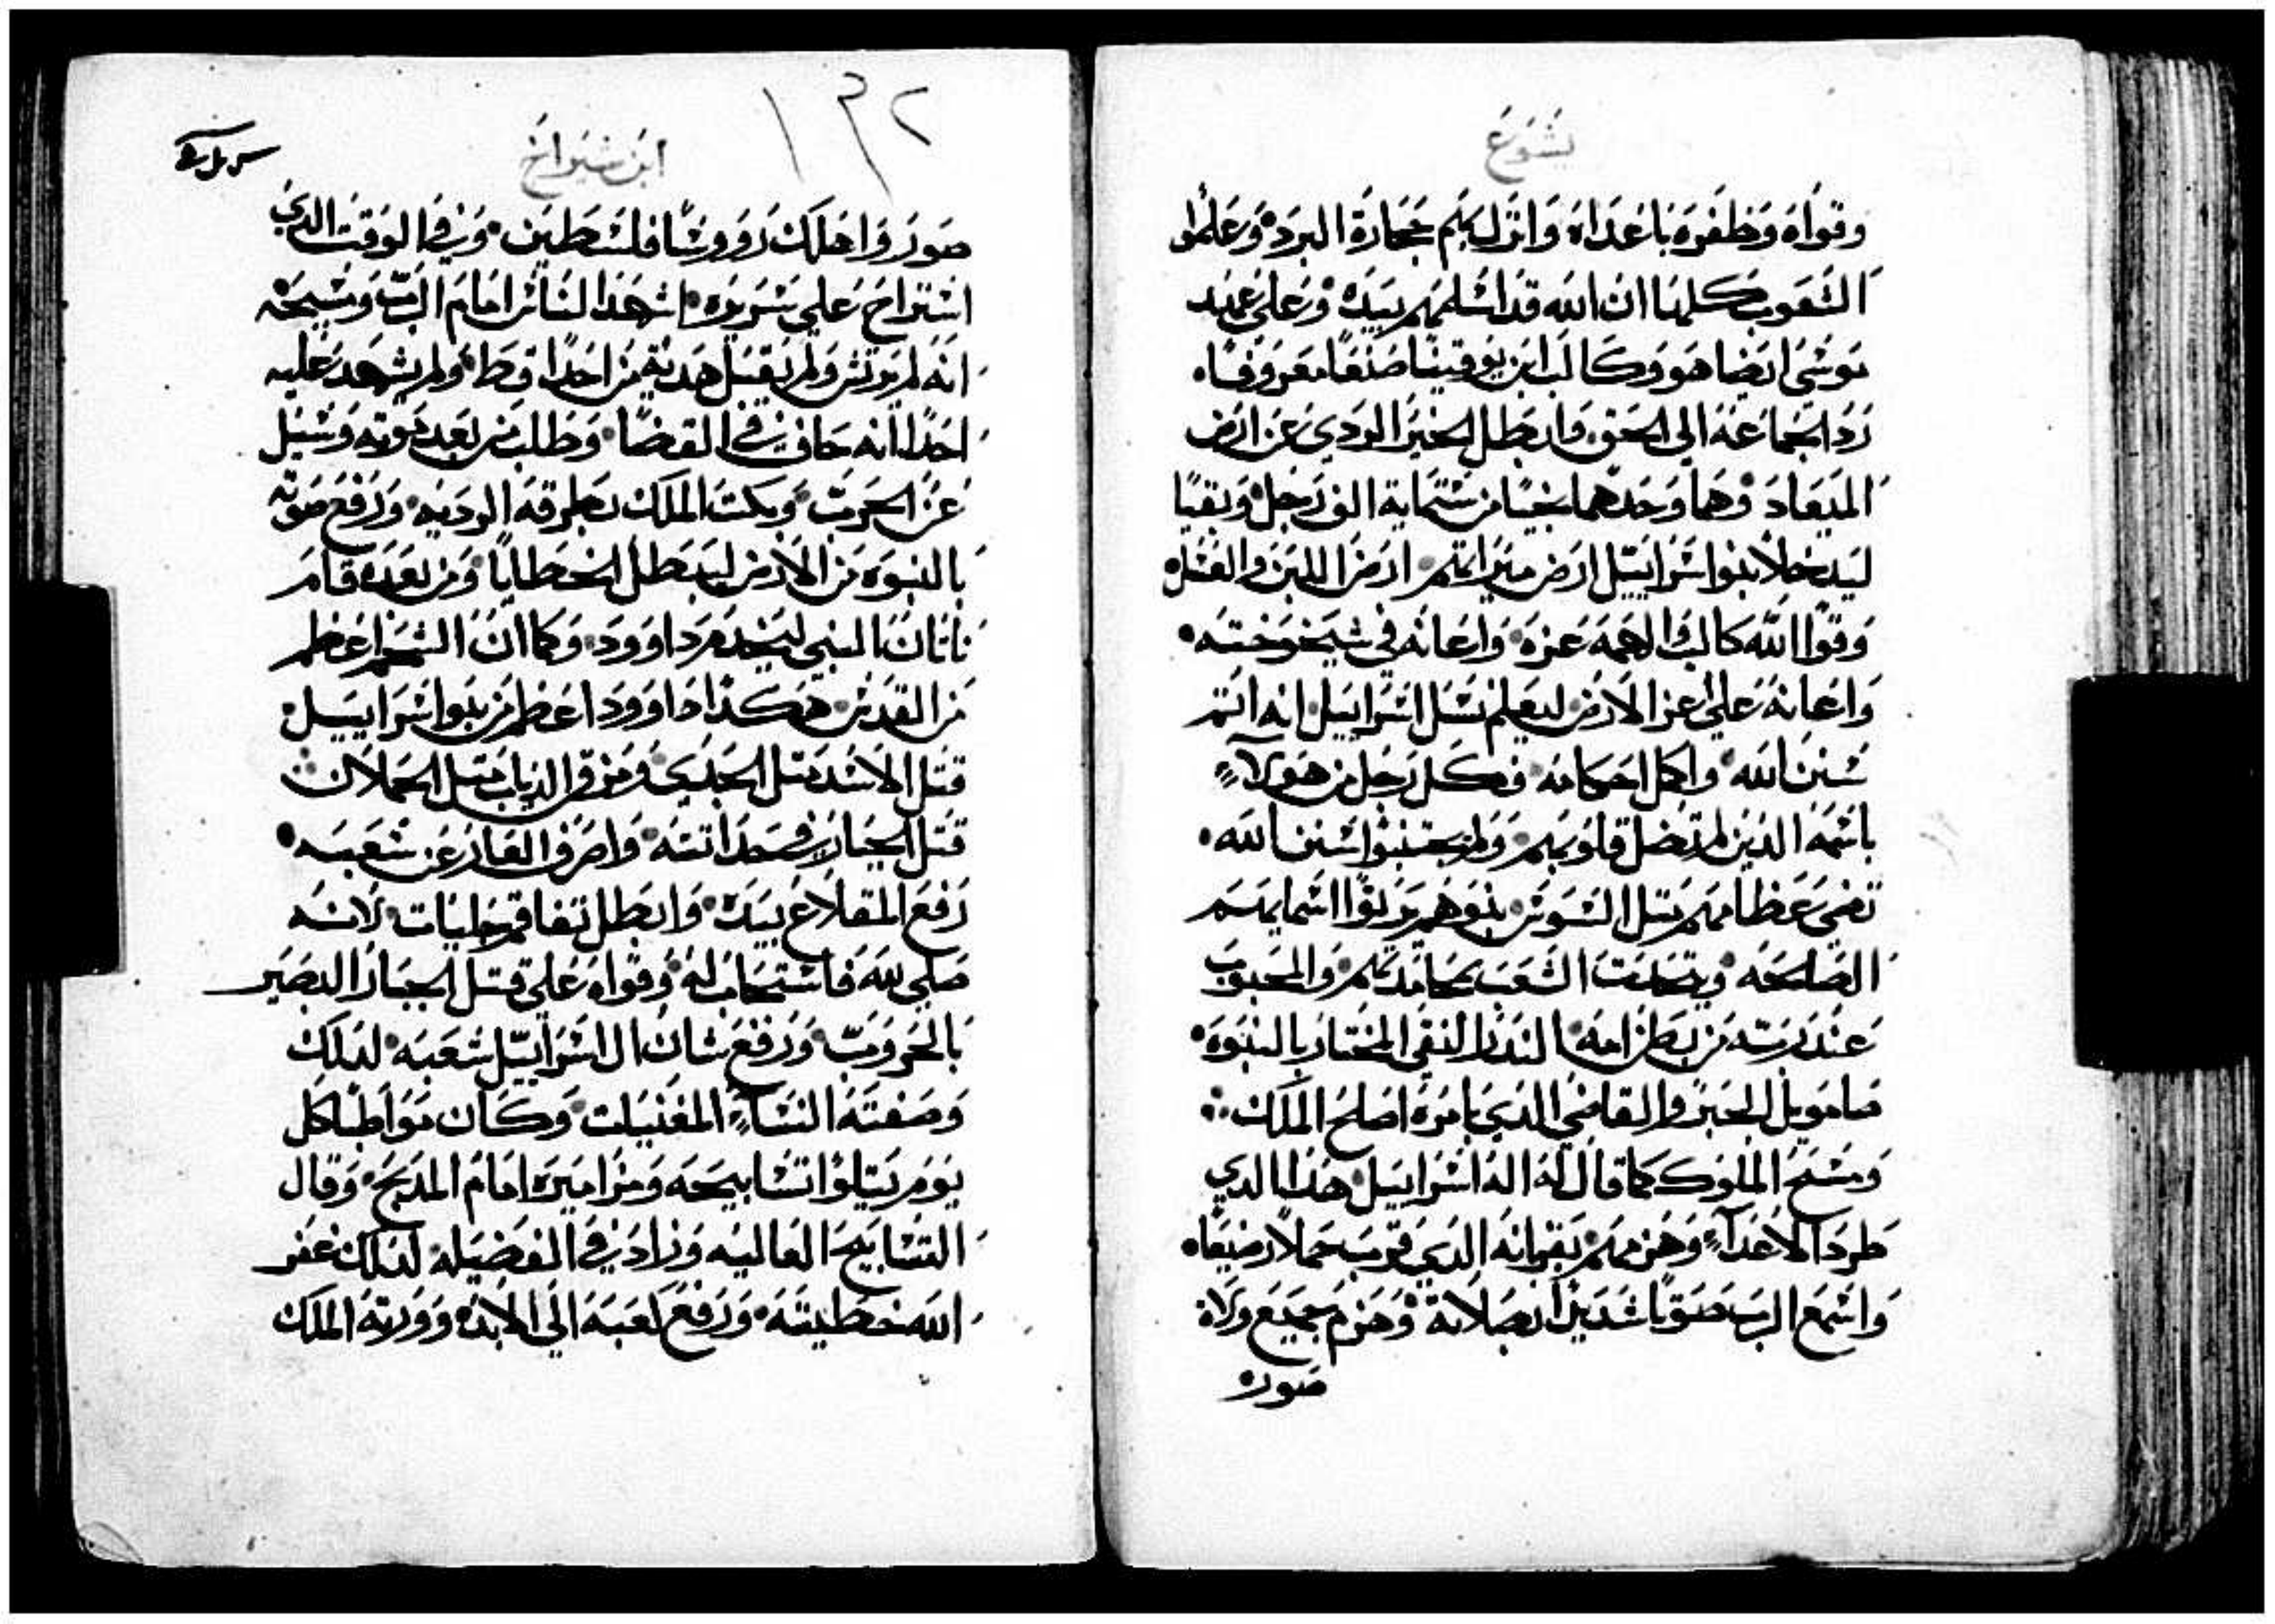 يشوع
وقواه وظفره باعداه وانزل بهم بحجارة البرد وعلموا
الشعوب كلها ان الله قد اسلمهم بيده وعلي عهد
موسي ايضا هو وكالب ابن يوقينا صنعا معروفا
ردا الجماعه الي الحق وابطل الخبر الردي عن ارض
الميعاد وهما وحدهما نجيا من ستماية الف رجل وبقيا
ليدخلا بنوا اسراييل ارض ميراثهم ارض اللبن والعسل
وقوا الله كالب الهمه عزه واعانه في شيخوخته
واعانه علي عز الارض ليعلم نسل اسراييل انه اتم
سنن الله واكمل احكامه فكل رجل من هولاء
باسمه الذين لم تضل قلوبهم ولم يجتنبوا سنن الله
تضي عظامهم مثل السوسن بنوهم يرثوا اسمايهم
الصالحه الشعب بمحامدهم والمحبوب
عند ربه من بطن امه النذر النقي المختار بالنبوه
صامويل الحبر والقاضي الدي بامره اصلح الملك
ومسح الملوك كما قال له اله اسراييل هذا الدي
طرد الاعداء وهزمهم بقربانه الدي قرب حملا رضيعا
واسمع الرب صوتا شديدا بصلاته وهزم جميع ولاة
صور
١٣٢
ابن شيراخ
صور واهلك روورسا فلسطين وفي الوقت الدي
استراح علي سريره اشهد الناس امام الرب ومسيحه
انه لم يرتش ولم يقبل هديه من احدا قط ولم يشهد عليه
احدا انه حاف في القضا وطلب من بعد موته وسيل
عن الحرب وبكت الملك بطرقه الرديه ورفع صوته
بالنبوه من الارض ليبطل الخطايا ومن بعده قام
ناتان النبي ليخدم داوود وكما ان الشحم اعظم
من القدس هكذا داوود اعظم من بنوا اسراييل
قتل الاسد مثل الجدي ومزق الدياب مثل الحملان
قتل الجبار في حداثته واصرف العار عن شعبه
رفع المقلاع بيده وابطل تفاقم جليات لانه
صلي لله فاستجاب له وقواه علي قتل الجبار البصير
بالحروب ورفع شان ال اسراييل شعبه لدلك
وصفته النساء المغنيات وكان مواظبا كل
يوم يتلوا تسابيحه ومزاميره امام المدبح وقال
التسابيح العاليه وزاد في الفضيله لدلك غفر
الله خطيته ورفع لعبه الي الابد وورثه الملك